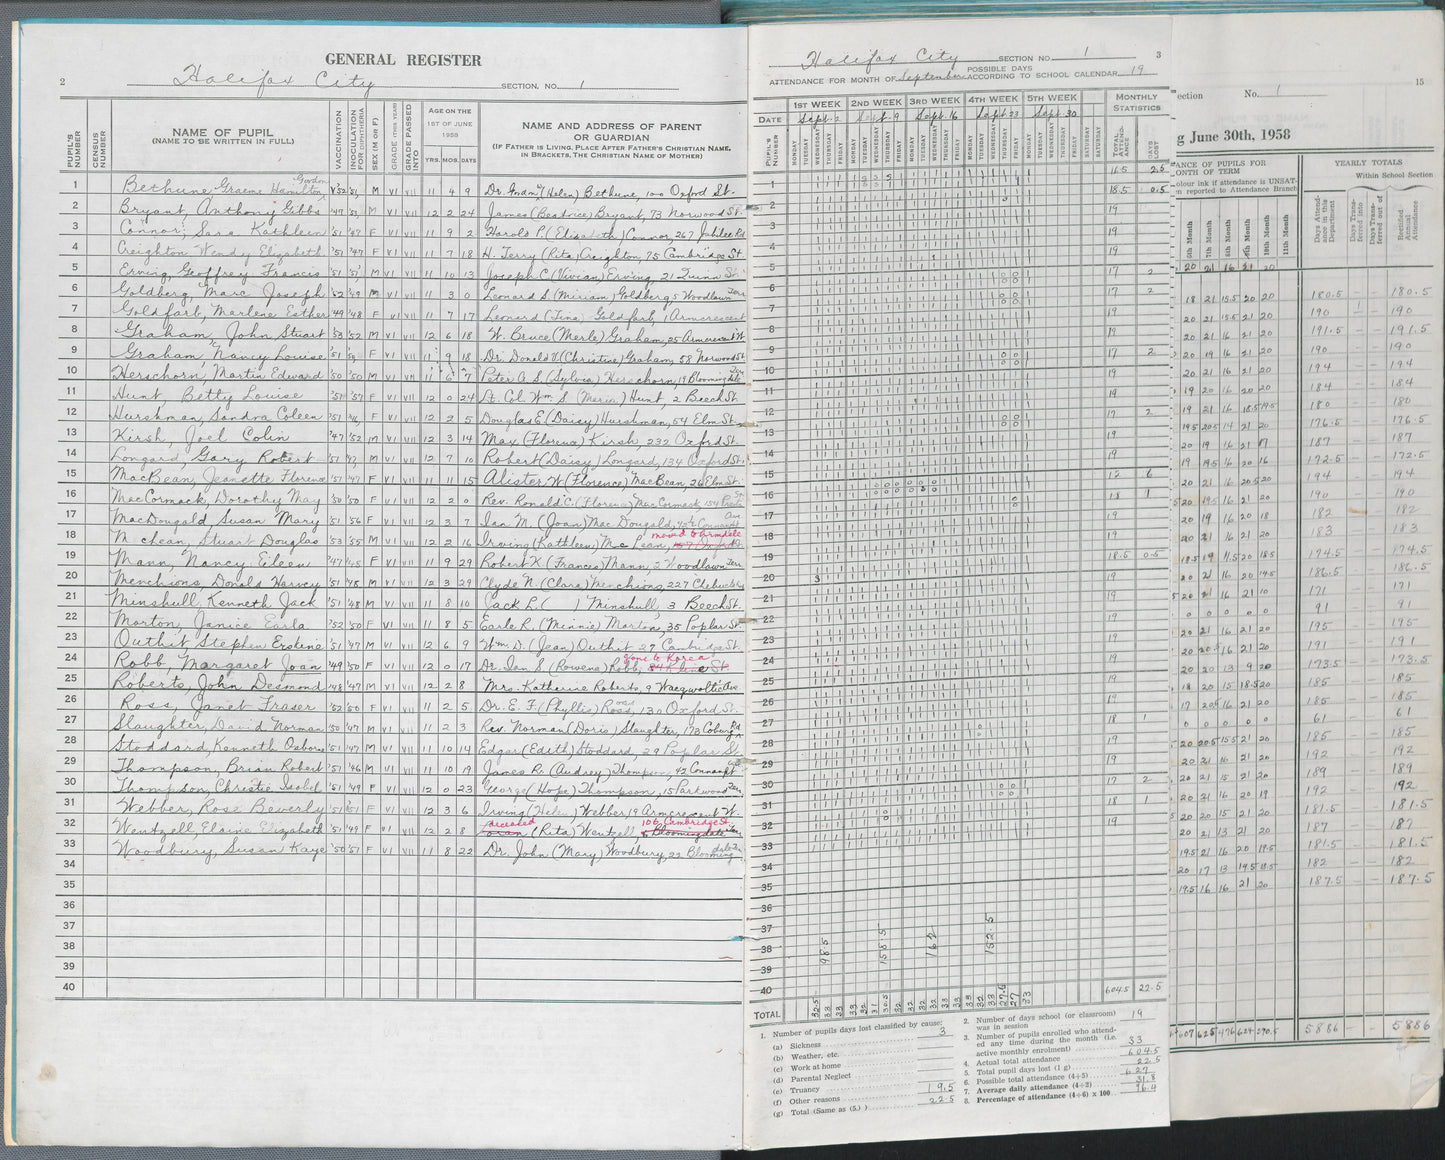 GENERAL REGISTER
2
Halifax City
SECTION, NO. 1
PUPIL'S NUMBER
CENSUS NUMBER
NAME OF PUPIL
(NAME TO BE WRITTEN IN FULL)
VACCINATION
INOCULATION FOR DIPHTHERIA
SEX (M OR F)
GRADE (THIS YEAR)
GRADE PASSED INTO
AGE ON THE 1ST OF JUNE 1958
YRS. MOS. DAYS
NAME AND ADDRESS OF PARENT OR GUARDIAN
(IF FATHER IS LIVING, PLACE AFTER FATHER'S CHRISTIAN NAME, IN BRACKETS, THE CHRISTIAN NAME OF MOTHER)
1 Bethune Graeme Hamilton Gordon M VI VII 11 4 9 (Helen) Bethune, 100 Oxford St.
2 Bryant, Anthony Gibbs '49 M VI VII 12 2 24 James (Beatrice) Bryant, 73 Norwood St.
3 Connor, Sara Kathleen '51 '47 F VI VII 11 9 2 Harold P. (Elizabeth) Connor, 267 Jubilee Rd
4 Creighton Wendy Elizabeth '51 '47 F VI VII 11 7 18 H. Terry (Rita) Creighton, 75 Cambridge St.
5 Erving, Geoffrey Francis '51 M VI VII 11 10 13 Joseph C. (Vivian) Erving, 21 Quinn St.
6 Goldberg, Marc Joseph '52 '49 M VI VII 11 3 0 Leonard S. (Miriam) Goldberg, 5 Woodlawn Terr
7 Goldfarb, Marlene Esther '49 '48 F VI VII 11 7 17 Leonard (Tina) Goldfarb, 1 Armcrescent
8 Graham, John Stuart '53 '52 M VI VII 12 6 18 W. Bruce (Merle) Graham, 25 Armcrescent W
9 Graham, Nancy Louise '51 F VI VII 11 9 18 Dr. Donald V. (Christine) Graham, 58 Norwood St
10 Herschorn, Martin Edward '50 '50 M VI VII 11 6 7 Peter A. S. (Sylvia) Herschorn, 19 Bloomingdale Terr
11 Hunt, Betty Louise '51 '57 F VI VII 12 0 24 Lt. Col. Wm. S. Hunt, 2 Beech St.
12 Hurshman, Sandra Coleen '51 F VI VII 12 2 5 Douglas E. (Daisy) Hurshman, 54 Elm St.
13 Kirsh, Joel Colin '47 '52 M VI VII 12 3 14 Max (Florence) Kirsh, 232 Oxford St.
14 Longard, Gary Robert '51 '47 M VI VII 12 7 10 Robert (Daisy) Longard, 134 Oxford St.
15 MacBean, Jeanette Florence '51 '47 F VI VII 11 11 15 Alister W. (Florence) MacBean, 26 Elm St.
16 MacCormack, Dorothy May '50 '50 F VI VII 12 2 0 Rev. Ronald C. (Florence) MacCormack, 154
17 MacDougald, Susan Mary '51 '56 F VI VII 12 3 7 Ian M. (Joan) MacDougald, Connaught Ave
18 M chean, Stuart Douglas '53 '55 M VI VII 12 2 16 Irving (Kathleen) McLean, moved to Armdale
19 Mann, Nancy Eileen '47 '45 F VI VII 11 9 29 Robert K. (Frances) Mann, 2 Woodlawn Terr
20 Menchions, Donald Harvey '51 '48 M VI VII 12 3 29 Clyde N. (Clara) Menchions, 227 Chebucto
21 Minshull, Kenneth Jack '51 '48 M VI VII 11 8 10 Jack L. ( ) Minshull, 3 Beech St.
22 Morton, Janice Earla '52 '50 F VI VII 11 8 5 Earle R. (Minnie) Morton, 35 Poplar St.
23 Outhit, Stephen Erskine '51 '47 M VI VII 12 6 9 Wm. D. (Jean) Outhit 27 Cambridge St.
24 Robb, Margaret Joan '49 '50 F VI VII 12 0 17 Dr. Ian S. (Rowene) Robb, gone to Korea
25 Roberts, John Desmond '48 '47 M VI VII 12 2 8 Mrs. Katherine Roberts, 9 Waegwoltic Ave
26 Ross, Janet Fraser '52 '50 F VI VII 11 2 5 Dr. E. F. (Phyllis) Ross, 130 Oxford St.
27 Slaughter, David Norman '50 '47 M VI VII 11 2 3 Rev. Norman (Doris) Slaughter, 173 Coburg Rd
28 Stoddard, Kenneth Osborne '51 '47 M VI VII 11 10 14 Edgar (Edith) Stoddard, 29 Poplar St.
29 Thompson, Brian Robert '51 '46 M VI VII 11 10 19 James R. (Audrey) Thompson, 42 Connaught
30 Thompson, Christie Isobel '51 '49 F VI VII 12 0 23 George (Hope) Thompson, 15 Parkwood Terr
31 Webber, Rose Beverly '51 '51 F VI VII 12 3 6 Irving (Helen) Webber, 19 Armcrescent W.
32 Wentzell, Elaine Elizabeth '51 '49 F VI VII 12 2 8 deceased (Rita) Wentzell, 106 Cambridge St. Bloomingdale Terr
33 Woodbury, Susan Kaye '50 '57 F VI VII 11 8 22 Dr. John (Mary) Woodbury, 22 Bloomingdale Terr
34
35
36
37
38
39
40
Halifax City
SECTION NO. 1
3
ATTENDANCE FOR MONTH OF September
POSSIBLE DAYS ACCORDING TO SCHOOL CALENDAR 19
1ST WEEK 2ND WEEK 3RD WEEK 4TH WEEK 5TH WEEK
MONTHLY STATISTICS
DATE Sept. 2 Sept. 9 Sept. 16 Sept. 23 Sept. 30
PUPIL'S NUMBER
MONDAY TUESDAY WEDNESDAY THURSDAY FRIDAY
SATURDAY SATURDAY
TOTAL ATTENDANCE
DAYS LOST
1 16.5 2.5
2 18.5 0.5
3 19
4 19
5 19
6 17 2
7 17 2
8 19
9 19
10 17 2
11 19
12 19
13 17 2
14 19
15 19
16 12 6
17 18 1
18 19
19 19
20 18.5 0.5
21 19
22 19
23
24
25
26
27
28 18 1
29 19
30 19
31 17 2
32 18 1
33 19
34
35
36
37
38
39
40
98.5 158.5 162 152.5
604.5 22.5
TOTAL 32.5 33 33 33 32 31 30.5 32 32 32 32 33 33 33 32 33 27.5 27 33
1. Number of pupils days lost classified by cause:
(a) Sickness 3
(b) Weather, etc.
(c) Work at home
(d) Parental Neglect
(e) Truancy
(f) Other reasons 19.5
(g) Total (Same as (5.) ) 22.5
2. Number of days school (or classroom) was in session 19
3. Number of pupils enrolled who attended any time during the month (i.e. active monthly enrolment) 33
4. Actual total attendance 604.5
5. Total pupil days lost (1 g) 22.5
6. Possible total attendance (4+5) 627
7. Average daily attendance (4÷2) 31.8
8. Percentage of attendance (4÷6) x 100 96.4
15
ection No. 1
g June 30th, 1958
ANCE OF PUPILS FOR
ONTH OF TERM
olour ink if attendance is UNSAT-
n reported to Attendance Branch
YEARLY TOTALS
Within School Section
6th Month 7th Month 8th Month 9th Month 10th Month 11th Month
Days Attendance in this Department
Days Transferred into
Days Transferred out of
Rectified Annual Attendance
20 21 16 21 20
18 21 15.5 20 20 180.5 — — 180.5
20 21 15.5 21 20 190 — — 190
20 21 16 21 20 191.5 — — 191.5
20 19 16 21 20 190 — — 190
20 21 16 21 20 194 — — 194
19 20 16 20 20 184 — — 184
19 21 16 18.5 19.5 180 — — 180
19.5 20.5 14 21 20 176.5 — — 176.5
20 19 16 21 17 187 — — 187
19 19.5 16 20 16 172.5 — — 172.5
20 21 16 20.5 20 194 — — 194
20 19.5 16 21 20 190 — — 190
20 19 16 20 18 182 — — 182
20 21 16 21 20 183 — — 183
18.5 19 11.5 20 18.5 174.5 — — 174.5
20 21 16 20 19.5 186.5 — — 186.5
20 21 16 21 10 171 — — 171
0 0 0 0 0 91 — — 91
20 21 16 21 20 195 — — 195
20 20.5 16 21 20 191 — — 191
20 20 13 9 20 173.5 — — 173.5
18 20 15 18.5 20 185 — — 185
17 20.5 16 21 20 185 — — 185
0 0 0 0 0 61 — — 61
20 20.5 15.5 21 20 185 — — 185
20 21 16 21 20 192 — — 192
20 21 15 21 20 189 — — 189
20 21 16 20 19 192 — — 192
20 20 15 21 20 181.5 — — 181.5
20 21 13 21 20 187 — — 187
19.5 21 16 20 19.5 181.5 — — 181.5
20 17 13 19.5 18.5 182 — — 182
19.5 16 16 21 20 187.5 — — 187.5
607 625 476 624 590.5 5886 — — 5886